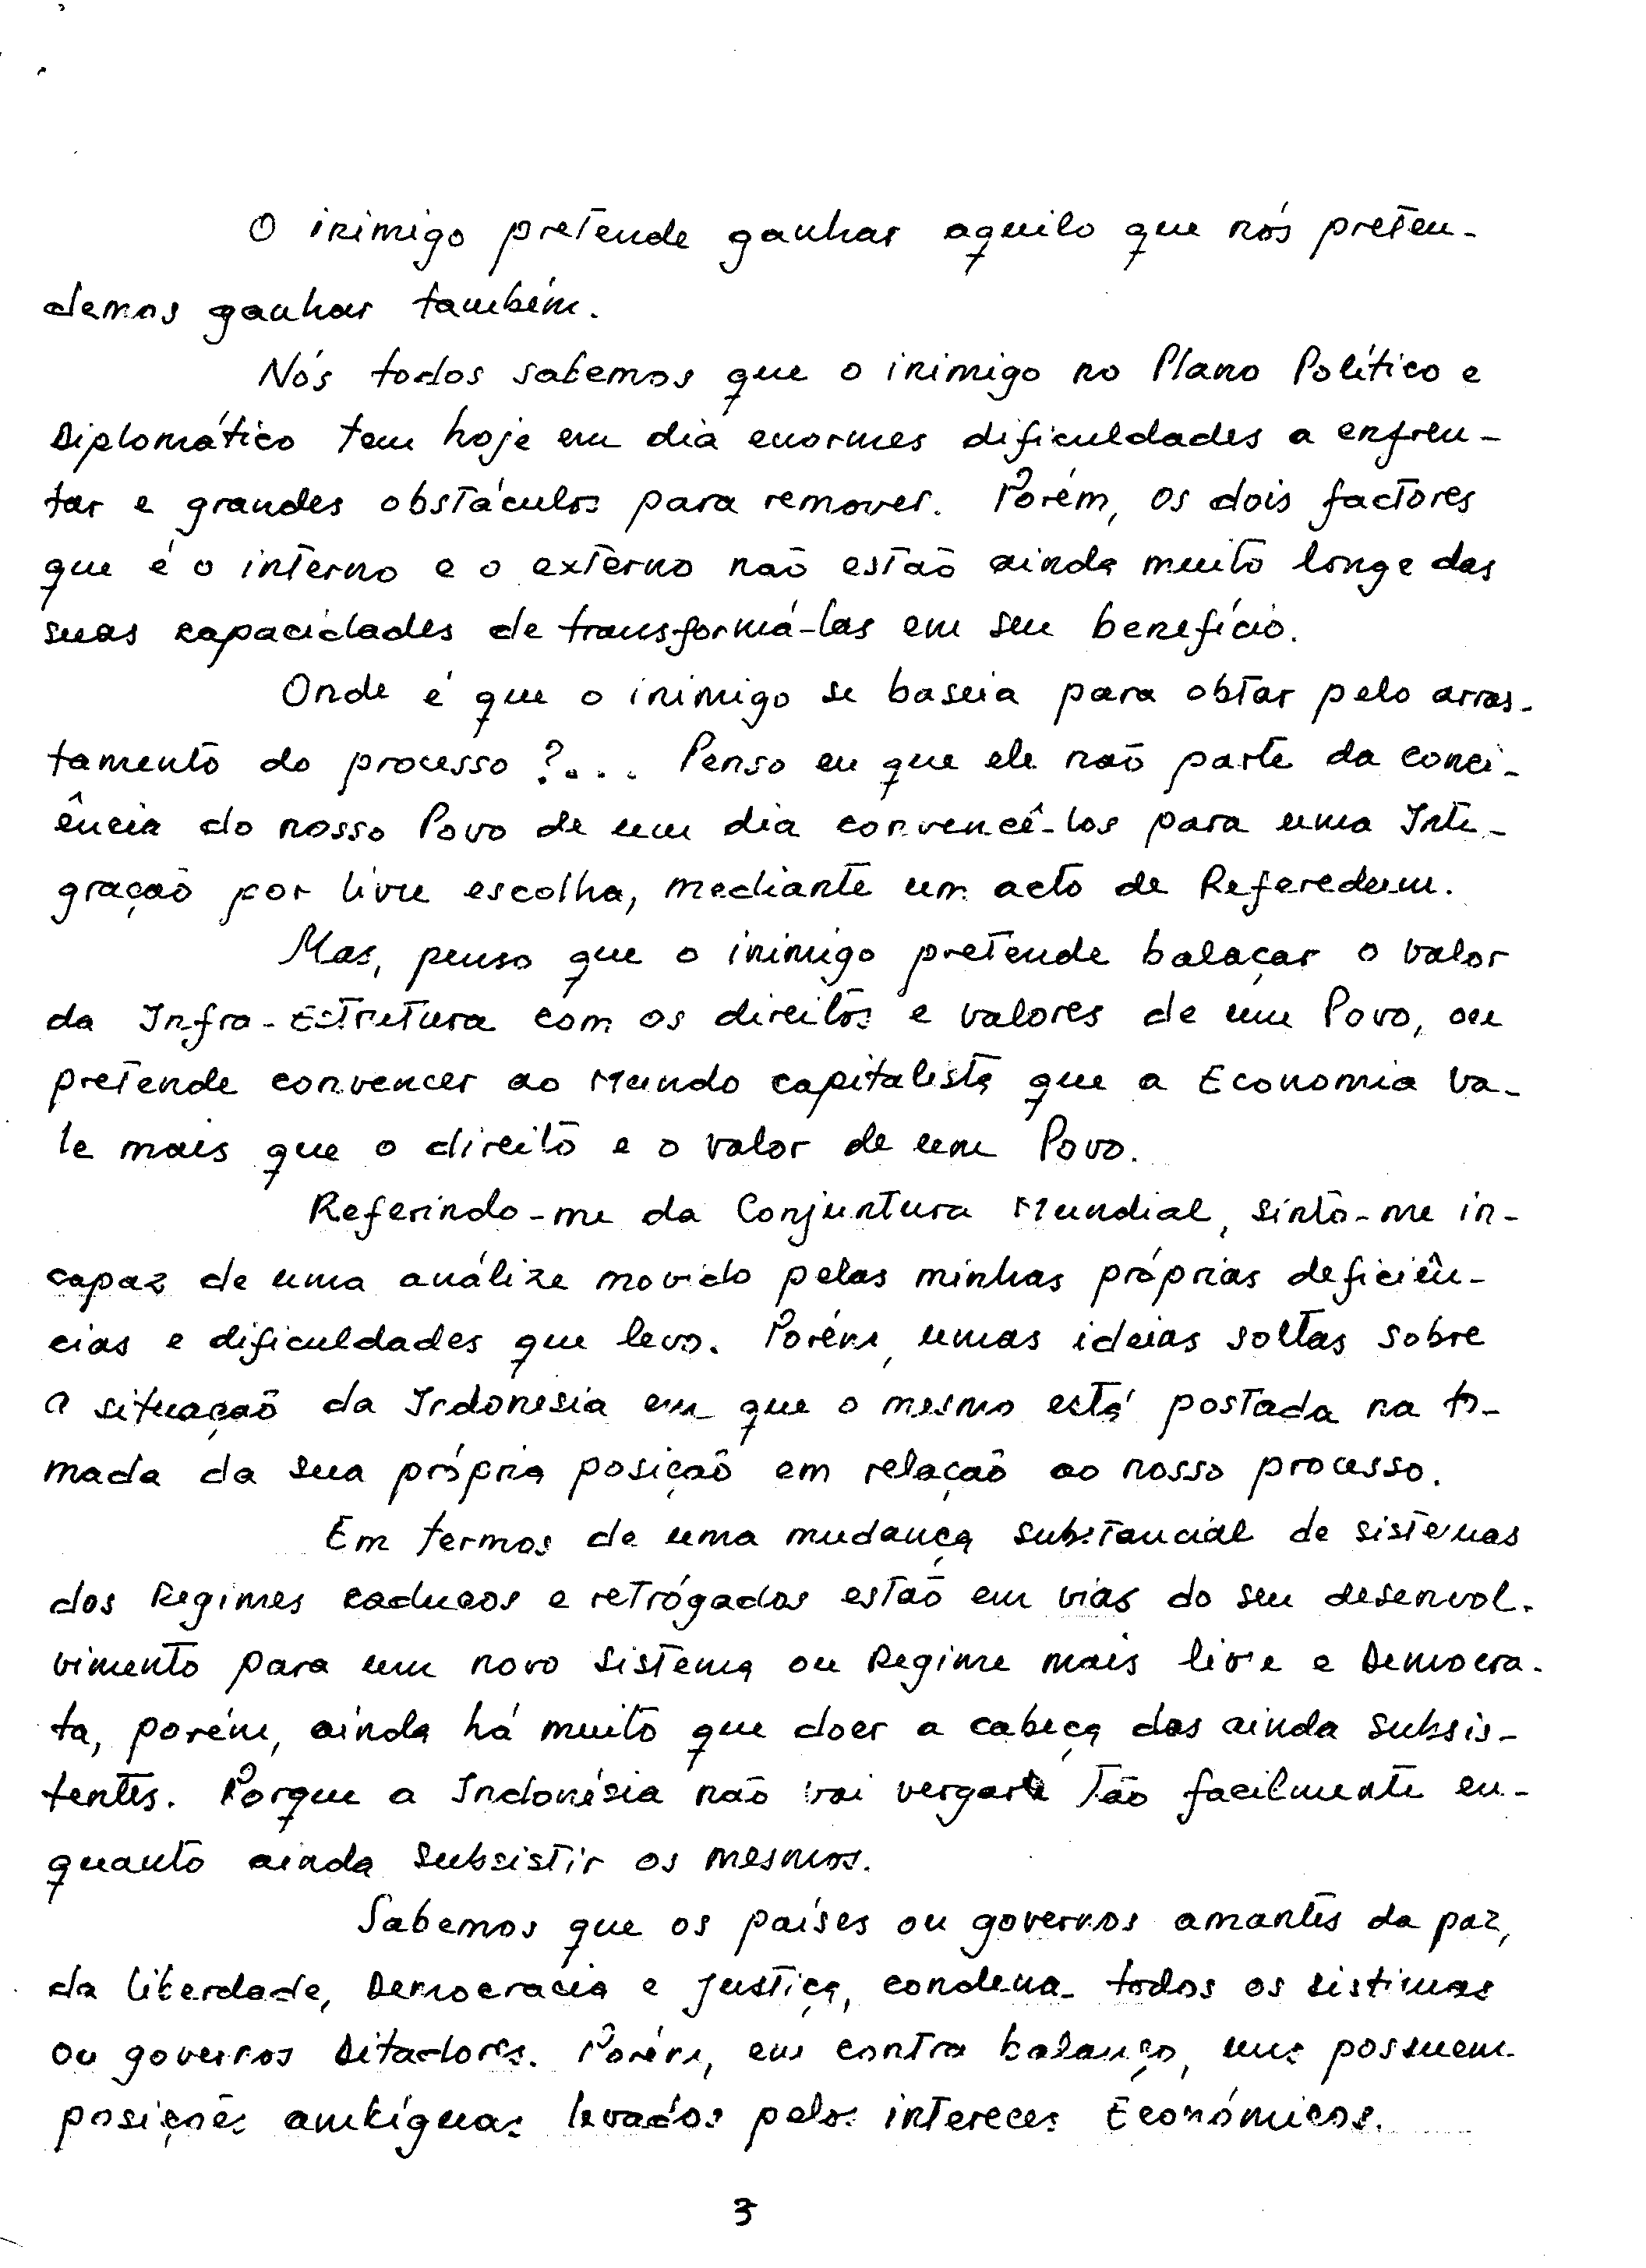 O inimigo pretende ganhar aquilo que nós preten-
demos ganhar também.
Nós todos sabemos que o inimigo no Plano Político e
Diplomático tem hoje em dia enormes dificuldades a enfren-
tar e grandes obstáculos para remover. Porém, os dois factores
que é o interno e o externo não estão ainda muito longe das
suas capacidades de transformá-las em seu benefício.
Onde é que o inimigo se baseia para obtar pelo arras-
tamento do processo?... Penso eu que ele não parte da conci-
ência do nosso Povo de um dia convencê-los para uma Inte-
gração por livre escolha, mediante um acto de Referedum.
Mas, penso que o inimigo pretende balaçar o valor
da Infra-Estrutura com os direitos e valores de um Povo, ou
pretende convencer ao Mundo capitalista que a Economia va-
le mais que o direito e o valor de um Povo.
Referindo-me da Conjuntura Mundial, sinto-me in-
capaz de uma análize movido pelas minhas próprias deficiên-
cias e dificuldades que levo. Porém, umas ideias soltas sobre
a situação da Indonesia em que o mesmo está postada na to-
mada da sua própria posição em relação ao nosso processo.
Em termos de uma mudança substancial de sistemas
dos Regimes caducos e retrógados estão em vias do seu desenvol-
vimento para um novo sistema ou Regime mais livre e Democra-
ta, porém, ainda há muito que doer a cabeça dos ainda subsis-
tentes. Porque a Indonésia não vai vergar tão facilmente en-
quanto ainda subsistir os mesmos.
Sabemos que os países ou governos amantes da paz,
da liberdade, Democracia e justiça, condena todos os sistimas
ou governos Ditadores. Porém, em contra balanço, uns possuem
posições ambíguas levados pelos intereces Económicos.
3